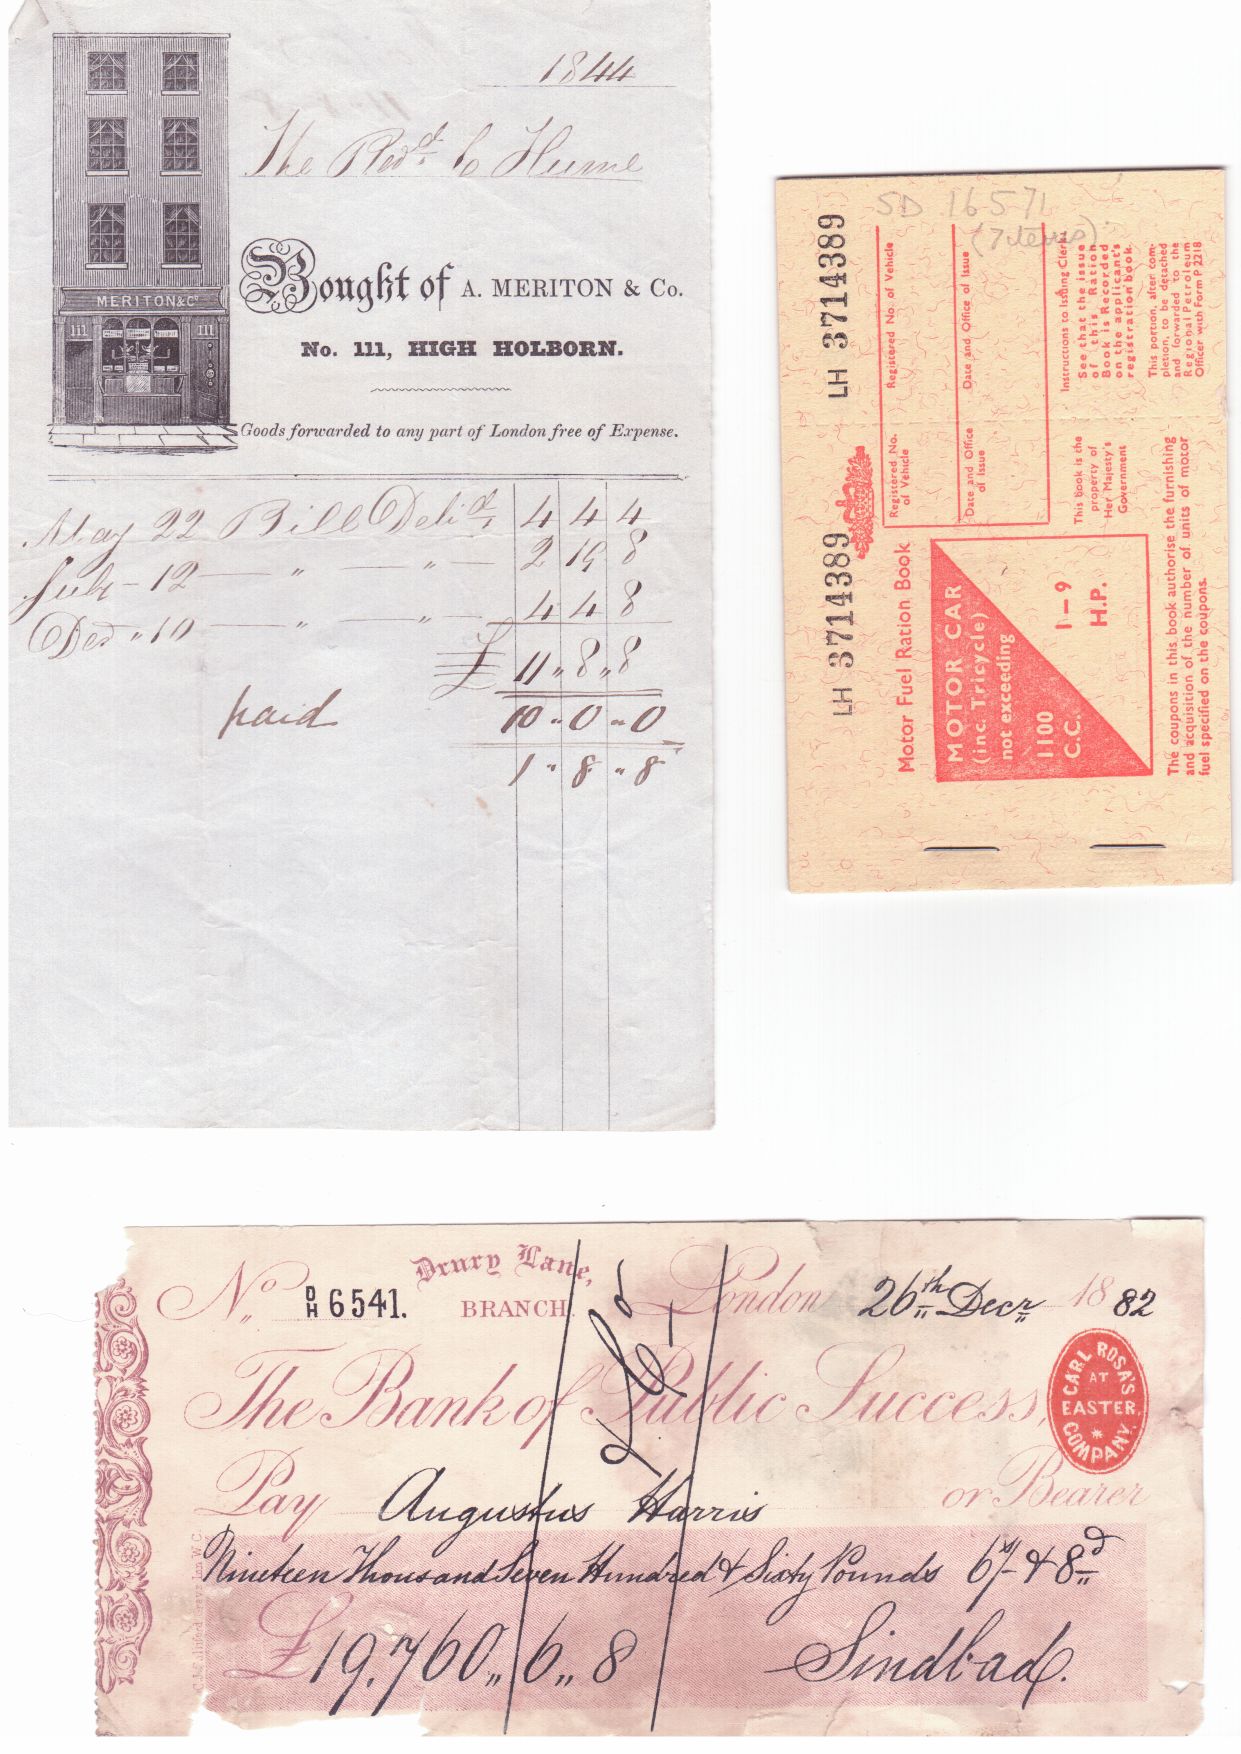 1844
The Revd. Jo Hume
MERITON & Co
111
111
Bought of A. MERITON & Co.
No. 111, HIGH HOLBORN.
Goods forwarded to any part of London free of Expense.
May 22 Bill Delid. 4 4 4
July - 12 — " — " — 2 19 8
Decr " 10 — " — " — 4 4 8
£ 11 " 8 " 8
paid 10 " 0 " 0
1 " 8 " 8
SD 16571
(7 items)
LH 3714389
LH 3714389
Motor Fuel Ration Book
MOTOR CAR
(inc. Tricycle)
not exceeding
1100
C.C.
1–9
H.P.
The coupons in this book authorise the furnishing
and acquisition of the number of units of motor
fuel specified on the coupons.
Registered No.
of Vehicle
Date and Office
of Issue
This book is the
property of
Her Majesty's
Government
Registered No. of Vehicle
Date and Office of Issue
Instructions to Issuing Clerk
See that the issue
of this Ration
Book is Recorded
on the applicant's
registration book.
This portion, after com-
pletion, to be detached
and forwarded to the
Regional Petroleum
Officer with Form P 2218
No. D/H 6541.
Drury Lane,
BRANCH.
London 26th Decr 1882
The Bank of Public Success,
CARL ROSA'S
AT
EASTER.
COMPANY.
Pay Augustus Harris or Bearer
Nineteen Thousand Seven Hundred & Sixty Pounds 6/- & 8d
£19,760 " 6 " 8 Sindbad.
& Co